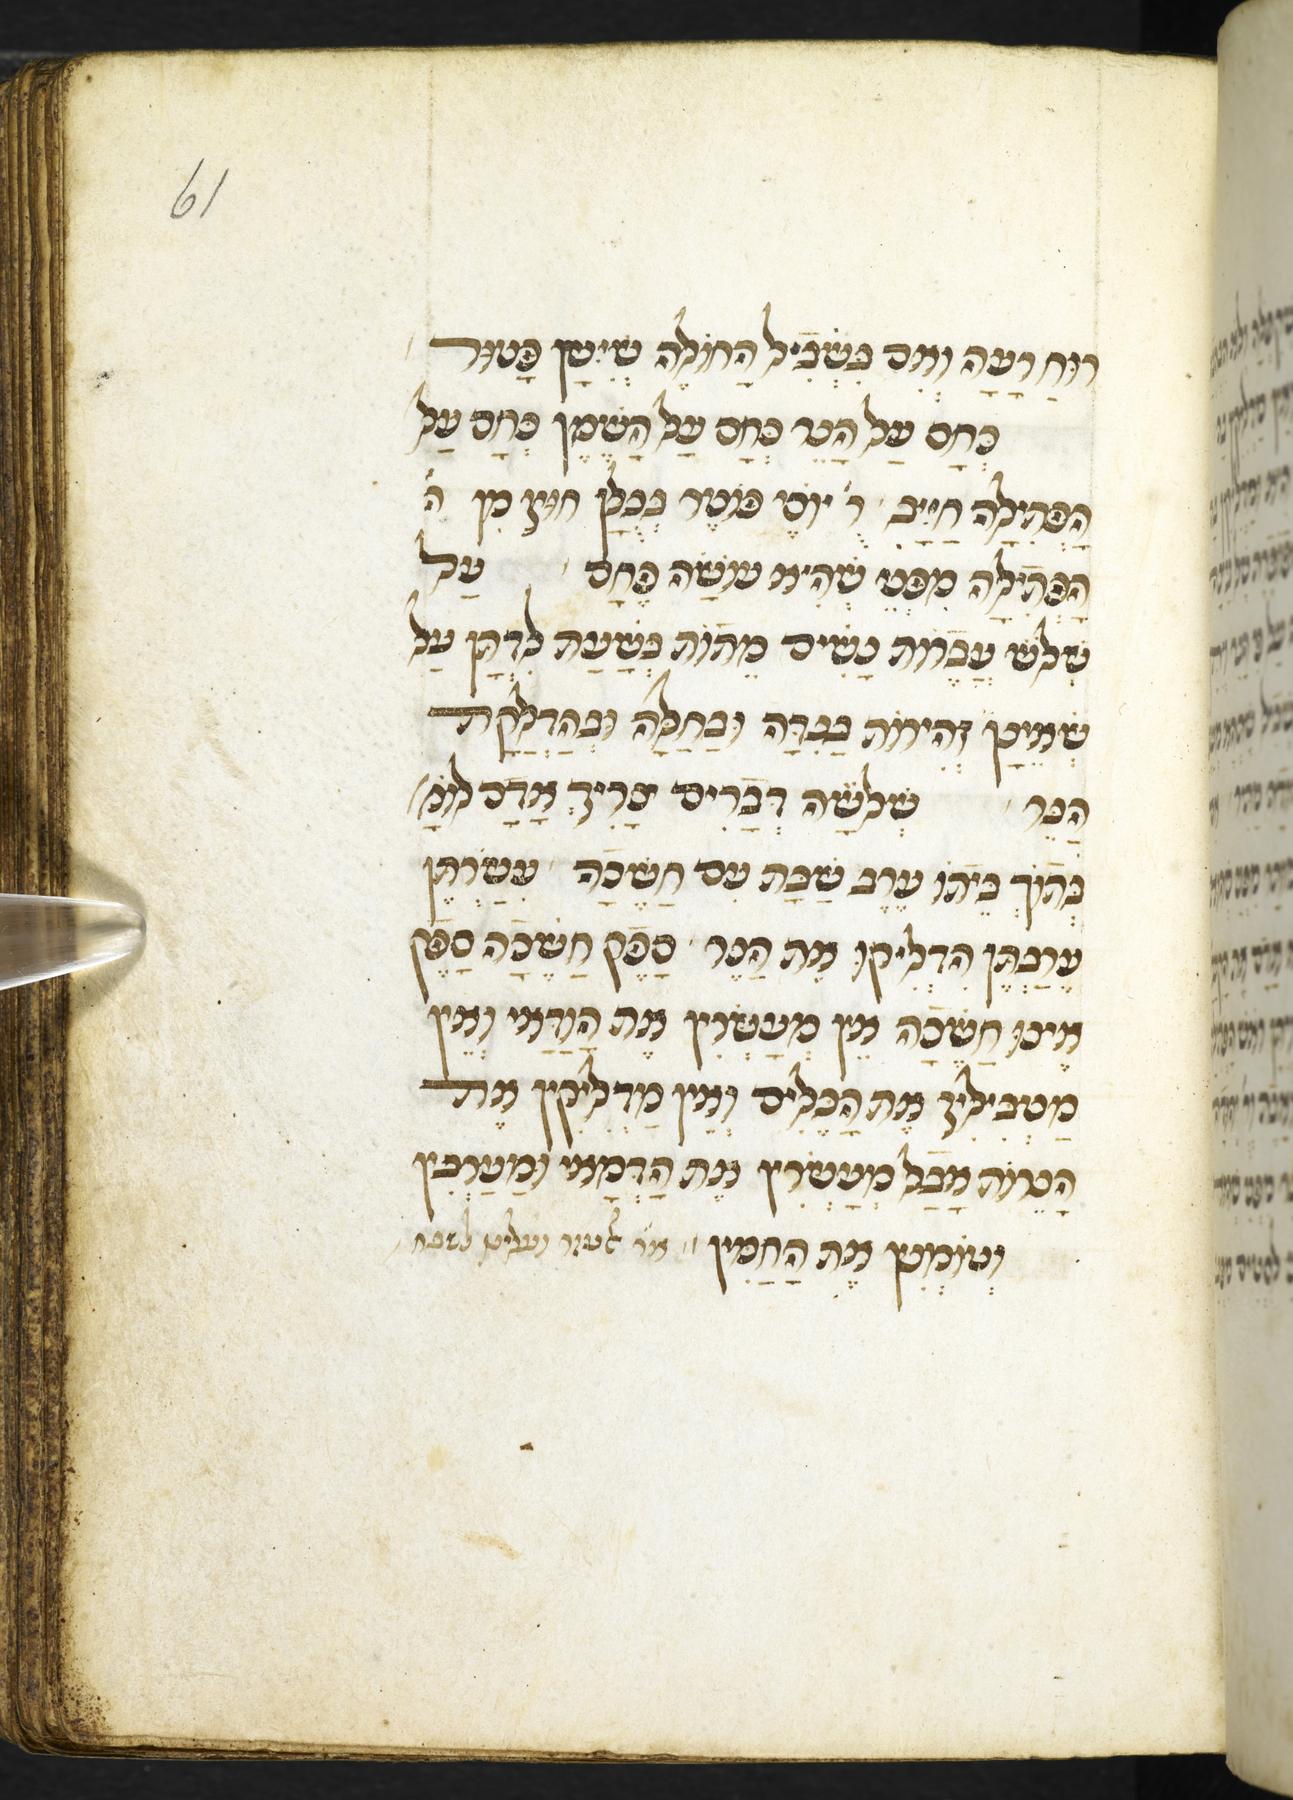 61
רוּחַ רָעָה וְאִם בִּשְׁבִיל הַחוֹלֶה שֶׁיִּישַׁן פָּטוּר
כְּחָס עַל הַנֵּר כְּחָס עַל הַשֶּׁמֶן כְּחָס עַל
הַפְּתִילָה חַיָּיב ר' יוֹסֵי פּוֹטֵר בְּכֻלָּן חוּץ מִן ה'
הַפְּתִילָה מִפְּנֵי שֶׁהִיא עוֹשָׂה פֶּחָם עַל
שְׁלֹשׁ עֲבֵרוֹת נָשִׁים מֵתוֹת בְּשָׁעַת לֵדָתָן עַל
שֶׁאֵינָן זְהִירוֹת בַּנִּדָּה וּבַחַלָּה וּבְהַדְלָקַת
הַנֵּר שְׁלֹשָׁה דְּבָרִים צָרִיךְ אָדָם לוֹמַ'
בְּתוֹךְ בֵּיתוֹ עֶרֶב שַׁבָּת עִם חֲשֵׁכָה עִשַּׂרְתֶּן
עֵרַבְתֶּן הִדְלִיקוּ אֶת הַנֵּר סָפֵק חֲשֵׁכָה סָפֵק
אֵינוֹ חֲשֵׁכָה אֵין מְעַשְּׂרִין אֶת הַוַּדַּאי וְאֵין
מַטְבִּילִין אֶת הַכֵּלִים וְאֵין מַדְלִיקִין אֶת
הַנֵּרוֹת אֲבָל מְעַשְּׂרִין אֶת הַדְּמַאי וּמְעָרְבִין
וְטוֹמְנִין אֶת הַחַמִּין